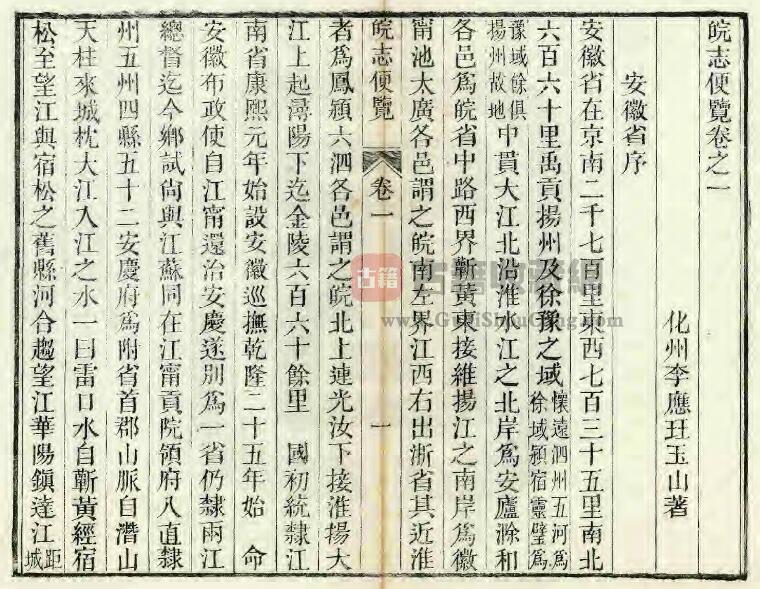 皖志便覽卷之一
化州李應珏玉山著
安徽省序
安徽省在京南二千七百里東西七百三十五里南北
六百六十里禹貢揚州及徐豫之域懷遠泗州五河爲徐域潁宿靈璧爲
豫域餘俱揚州故地中貫大江北沿淮水江之北岸爲安廬滁和
各邑爲皖省中路西界蘄黃東接維揚江之南岸爲徽
甯池太廣各邑謂之皖南左界江西右出浙省其近淮
皖志便覽 卷一 一
者爲鳳潁六泗各邑謂之皖北上連光汝下接淮揚大
江上起潯陽下迄金陵六百六十餘里 國初統隸江
南省康熙元年始設安徽巡撫乾隆二十五年始 命
安徽布政使自江甯還治安慶遂別爲一省仍隸兩江
總督迄今鄉試尙與江蘇同在江甯貢院領府八直隸
州五州四縣五十二安慶府爲附省首郡山脈自潛山
天柱來城枕大江入江之水一曰雷口水自蘄黃經宿
松至望江與宿松之舊縣河合趨望江華陽鎮達江距城
古籍
古籍收藏網
www.GuJiShouCang.com